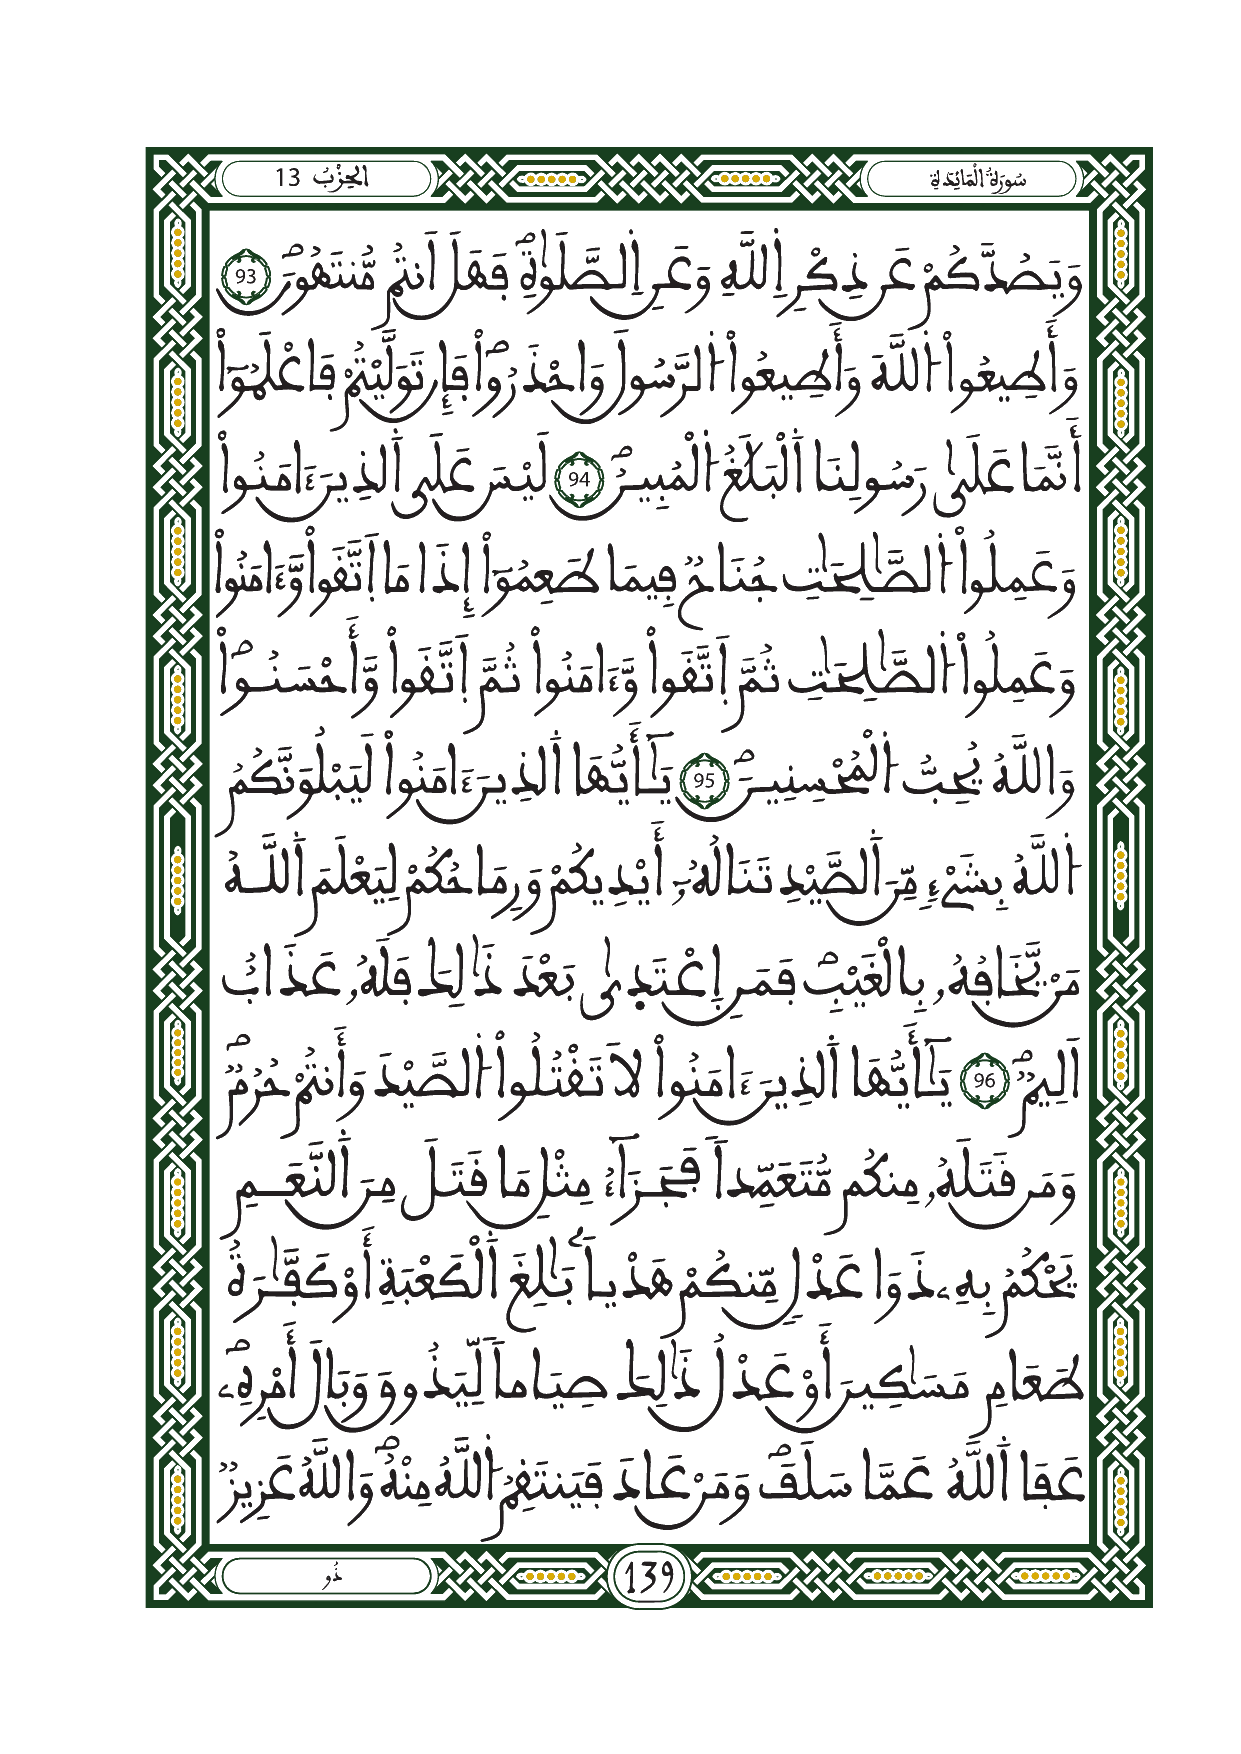 سُورَةُ الْمَائِدَةِ
الحِزْبُ 13
وَيَصُدَّكُمْ عَن ذِكْرِ اِ۬للَّهِ وَعَنِ اِ۬لصَّلَوٰةِۖ فَهَلَ اَنتُم مُّنتَهُونَۖ 93
وَأَطِيعُواْ اُ۬للَّهَ وَأَطِيعُواْ اُ۬لرَّسُولَ وَاحْذَرُواْۖ فَإِن تَوَلَّيْتُمْ فَاعْلَمُوٓاْ
أَنَّمَا عَلَىٰ رَسُولِنَا اَ۬لْبَلَٰغُ اُ۬لْمُبِينُۖ 94 لَيْسَ عَلَى اَ۬لذِينَ ءَامَنُواْ
وَعَمِلُواْ اُ۬لصَّٰلِحَٰتِ جُنَاحٞ فِيمَا طَعِمُوٓاْ إِذَا مَا اَ۪تَّقَواْ وَّءَامَنُواْ
وَعَمِلُواْ اُ۬لصَّٰلِحَٰتِ ثُمَّ اَ۪تَّقَواْ وَّءَامَنُواْ ثُمَّ اَ۪تَّقَواْ وَّأَحْسَنُواْۖ
وَاللَّهُ يُحِبُّ اُ۬لْمُحْسِنِينَۖ 95 يَٰٓأَيُّهَا اَ۬لذِينَ ءَامَنُواْ لَيَبْلُوَنَّكُمُ
اُ۬للَّهُ بِشَےْءٖ مِّنَ اَ۬لصَّيْدِ تَنَالُهُۥٓ أَيْدِيكُمْ وَرِمَاحُكُمْ لِيَعْلَمَ اَ۬للَّهُ
مَنْ يَّخَافُهُۥ بِالْغَيْبِۖ فَمَنِ اِ۪عْتَد۪ىٰ بَعْدَ ذَٰلِكَ فَلَهُۥ عَذَابٌ
اَلِيمٞۖ 96 يَٰٓأَيُّهَا اَ۬لذِينَ ءَامَنُواْ لَا تَقْتُلُواْ اُ۬لصَّيْدَ وَأَنتُمْ حُرُمٞۖ
وَمَن قَتَلَهُۥ مِنكُم مُّتَعَمِّداٗ فَجَزَآءُ مِثْلِ مَا قَتَلَ مِنَ اَ۬لنَّعَمِ
يَحْكُمُ بِهِۦ ذَوَا عَدْلٖ مِّنكُمْ هَدْياَۢ بَٰلِغَ اَ۬لْكَعْبَةِ أَوْ كَفَّٰرَةُ
طَعَامِ مَسَٰكِينَ أَوْ عَدْلُ ذَٰلِكَ صِيَاماٗ لِّيَذُوقَ وَبَالَ أَمْرِهِۦۖ
عَفَا اَ۬للَّهُ عَمَّا سَلَفَۖ وَمَنْ عَادَ فَيَنتَقِمُ اُ۬للَّهُ مِنْهُۖ وَاللَّهُ عَزِيزٞ
139
ذُو